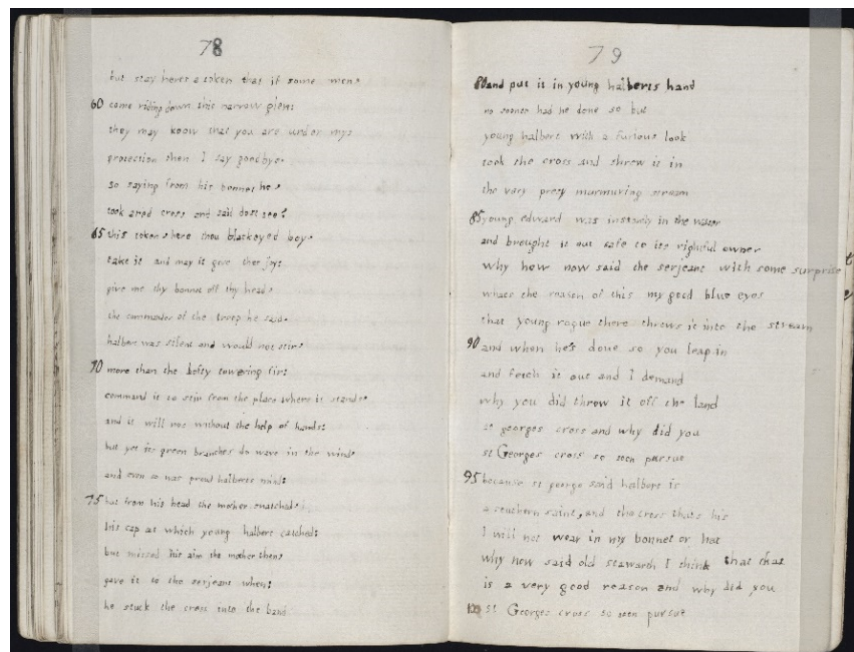 78
but stay heres a token that if some men
60 come riding down this narrow glen
they may know that you are under my
protection then I say goodbye
so saying from his bonnet he
took a red cross and said dost see
65 this token here thou blackeyed boy
take it and may it give thee joy
give me thy bonnet off thy head
the commander of the troop he said
halbert was silent and would not stir
70 more than the lofty towering fir
command it to stir from the place where it stands
and it will not without the help of hands
but yet its green branches do wave in the wind
and even so was proud halberts mind
75 but from his head the mother snatched
his cap at which young halbert catched
but missed his aim the mother then
gave it to the serjeant when
he stuck the cross into the band
79
80 and put it in young halberts hand
no sooner had he done so but
young halbert with a furious look
took the cross and threw it in
the very pretty murmuring stream
85 young edward was instantly in the water
and brought it out safe to its rightful owner
why how now said the serjeant with some surprise
whats the reason of this my good blue eyes
that young rogue there throws it into the stream
90 and when he's done so you leap in
and fetch it out and I demand
why you did throw it off the land
st georges cross and why did you
st Georges cross so soon pursue
95 because st george said halbert is
a southern saint, and the cross thats his
I will not wear in my bonnet or hat
why now said old stawarth I think that that
is a very good reason and why did you
100 st Georges cross so soon pursue